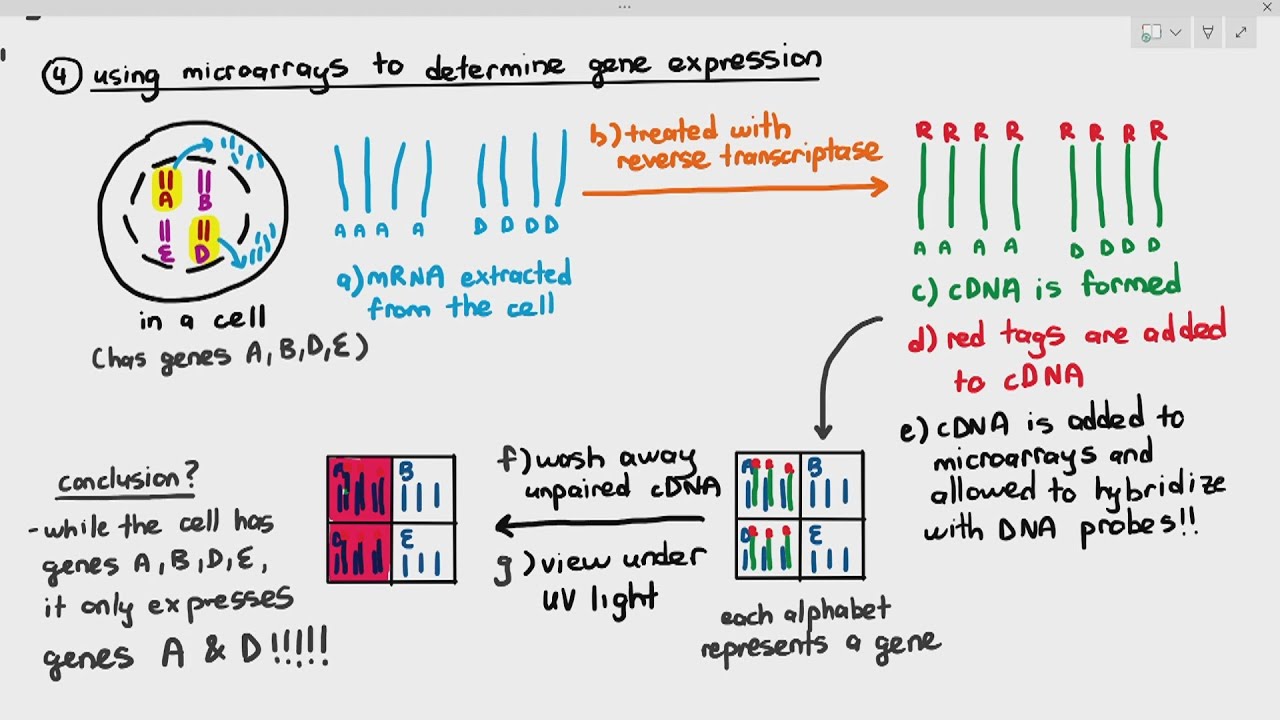 ④ using microarrays to determine gene expression
A B
E D
in a cell
(has genes A, B, D, E)
A A A A D D D D
a) mRNA extracted
from the cell
b) treated with
reverse transcriptase
R R R R R R R R
A A A A D D D D
c) cDNA is formed
d) red tags are added
to cDNA
e) cDNA is added to
microarrays and
allowed to hybridize
with DNA probes!!
A B
D E
each alphabet
represents a gene
f) wash away
unpaired cDNA
g) view under
UV light
A B
D E
conclusion?
- while the cell has
genes A, B, D, E,
it only expresses
genes A & D!!!!!